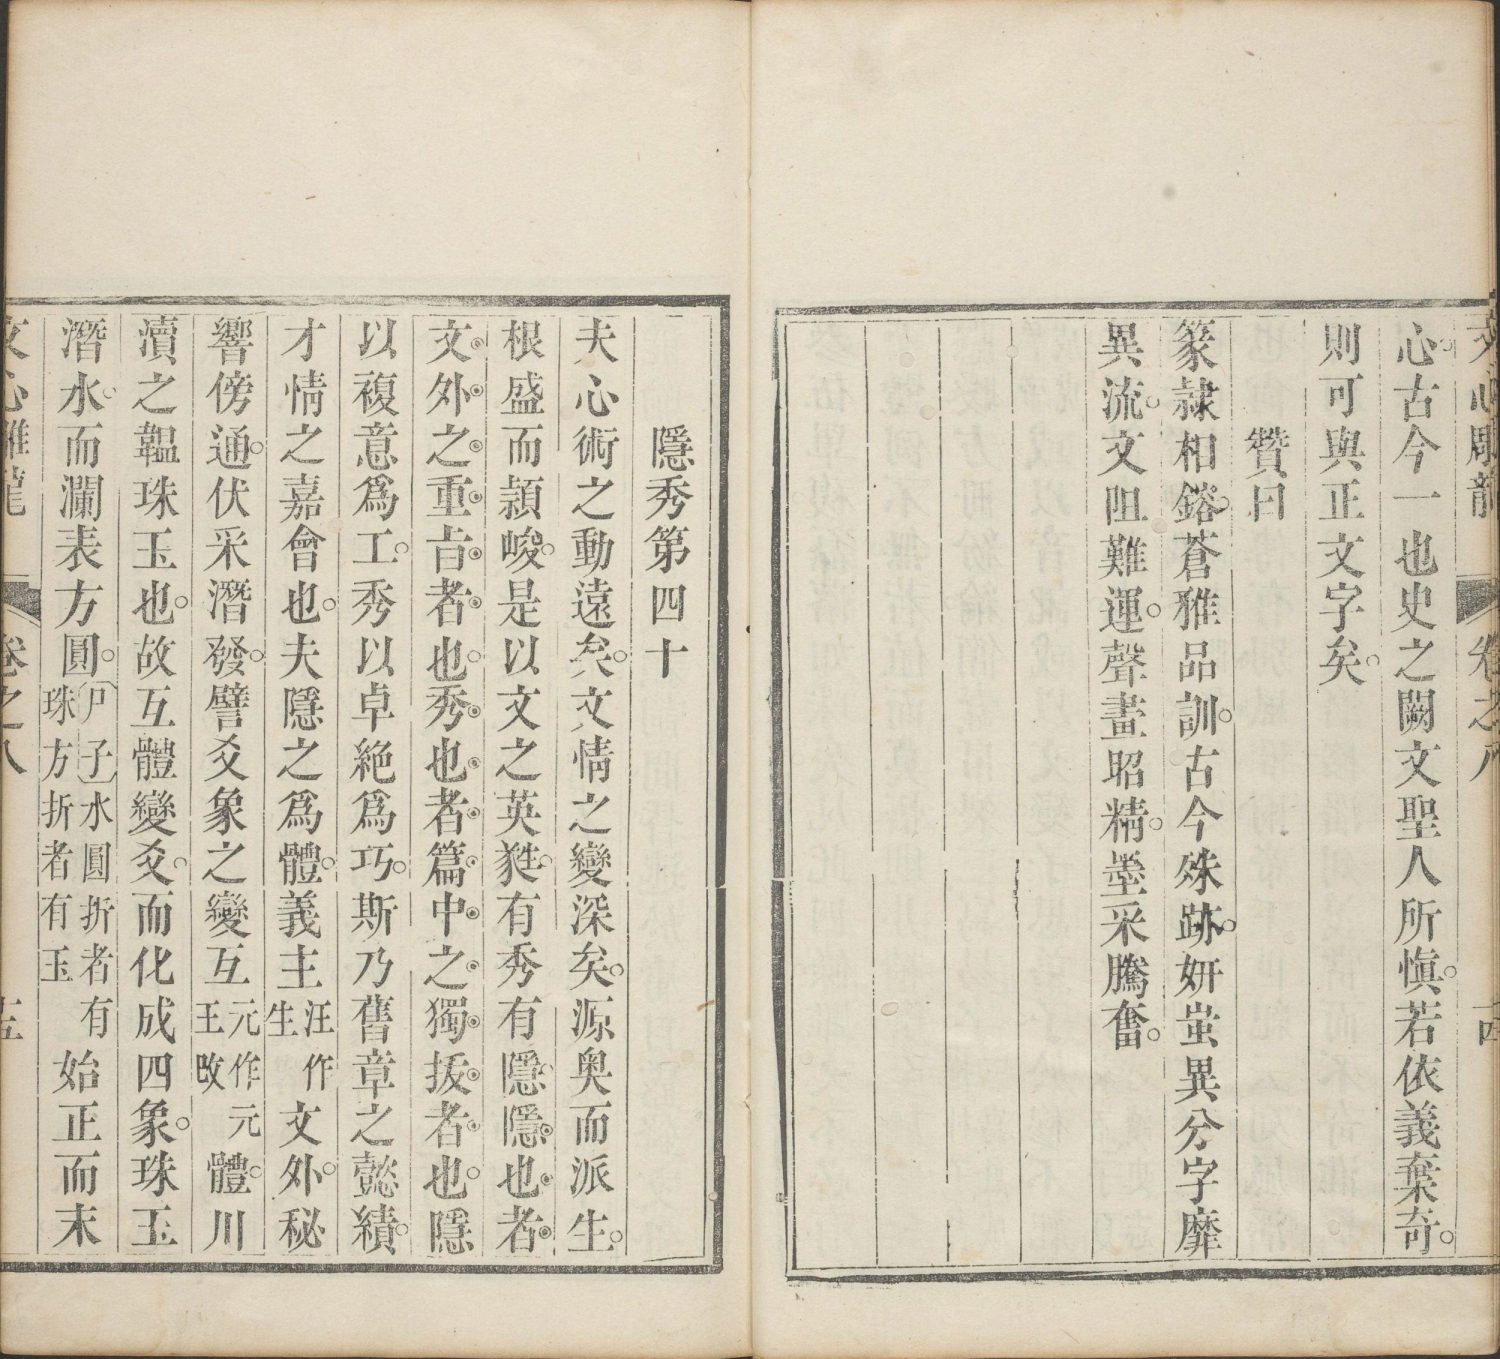 文心雕龍 卷之八 十四
心古今一也史之闕文聖人所慎若依義棄奇
則可與正文字矣
贊曰
篆隸相鎔蒼雅品訓古今殊跡妍蚩異分字靡
異流文阻難運聲畫昭精墨采騰奮
隱秀第四十
夫心術之動遠矣文情之變深矣源奥而派生
根盛而頴峻是以文之英甤有秀有隱隱也者
文外之重㫖者也秀也者篇中之獨拔者也隱
以複意爲工秀以卓絶爲巧斯乃舊章之懿績
才情之嘉會也夫隱之爲體義主汪作生文外秘
響傍通伏采潛發譬爻象之變互元作元王改體川
瀆之韞珠玉也故互體變爻而化成四象珠玉
潛水而瀾表方圓尸子水圓折者有珠方折者有玉始正而末
文心雕龍 卷之八 十五